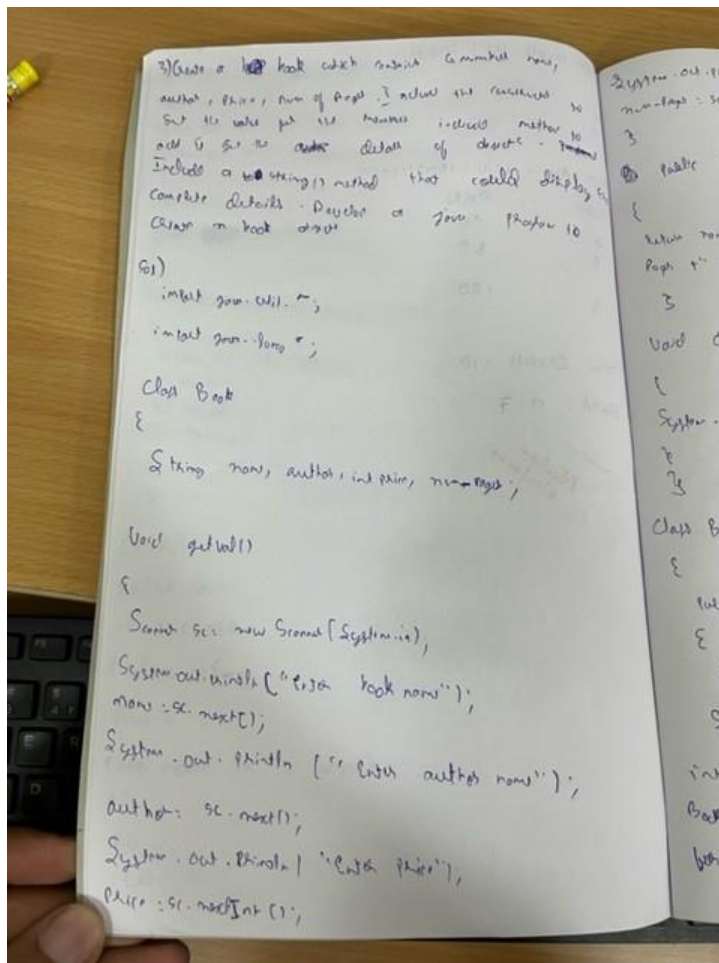 3) Create a book which contain 4 member name,
author, price, num of pages. Include the constructor to
Set the value for the members include method to
and set the details of objects.
Include a tostring() method that could display the
Complete details. Develop a java program to
Create n book
Sol)
import java.util.*;
import java.
Class Book
{
String name, author, int price, num-Pages;
Void getval()
{
Scanner sc: new Scanner(System.in),
System.out.println("Enter book name");
name :sc.next();
System.out.println ("Enter author name");
author: sc.next();
System.out.println( "Enter price");
price :sc.nextInt();
System.out.
num-Pages :
}
public
{
return
Page +"
}
Void
{
System.
}
}
Class B
{
{
int